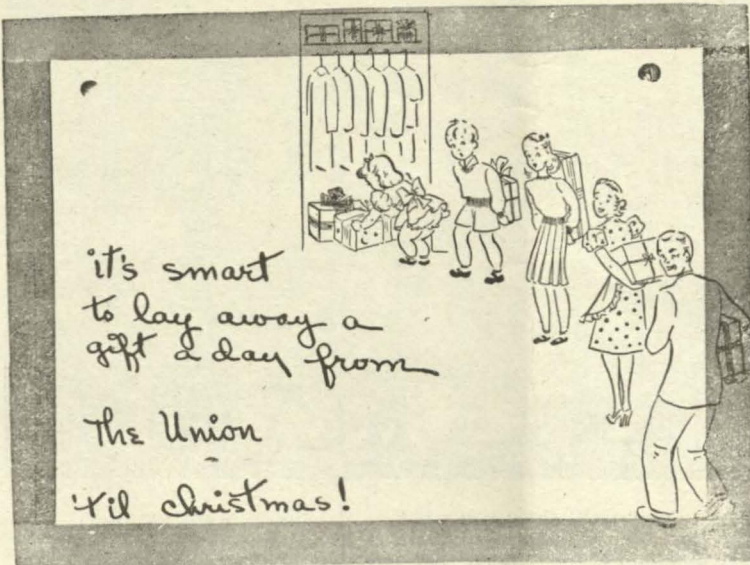 it's smart
to lay away a
gift a day from
The Union
'til christmas!